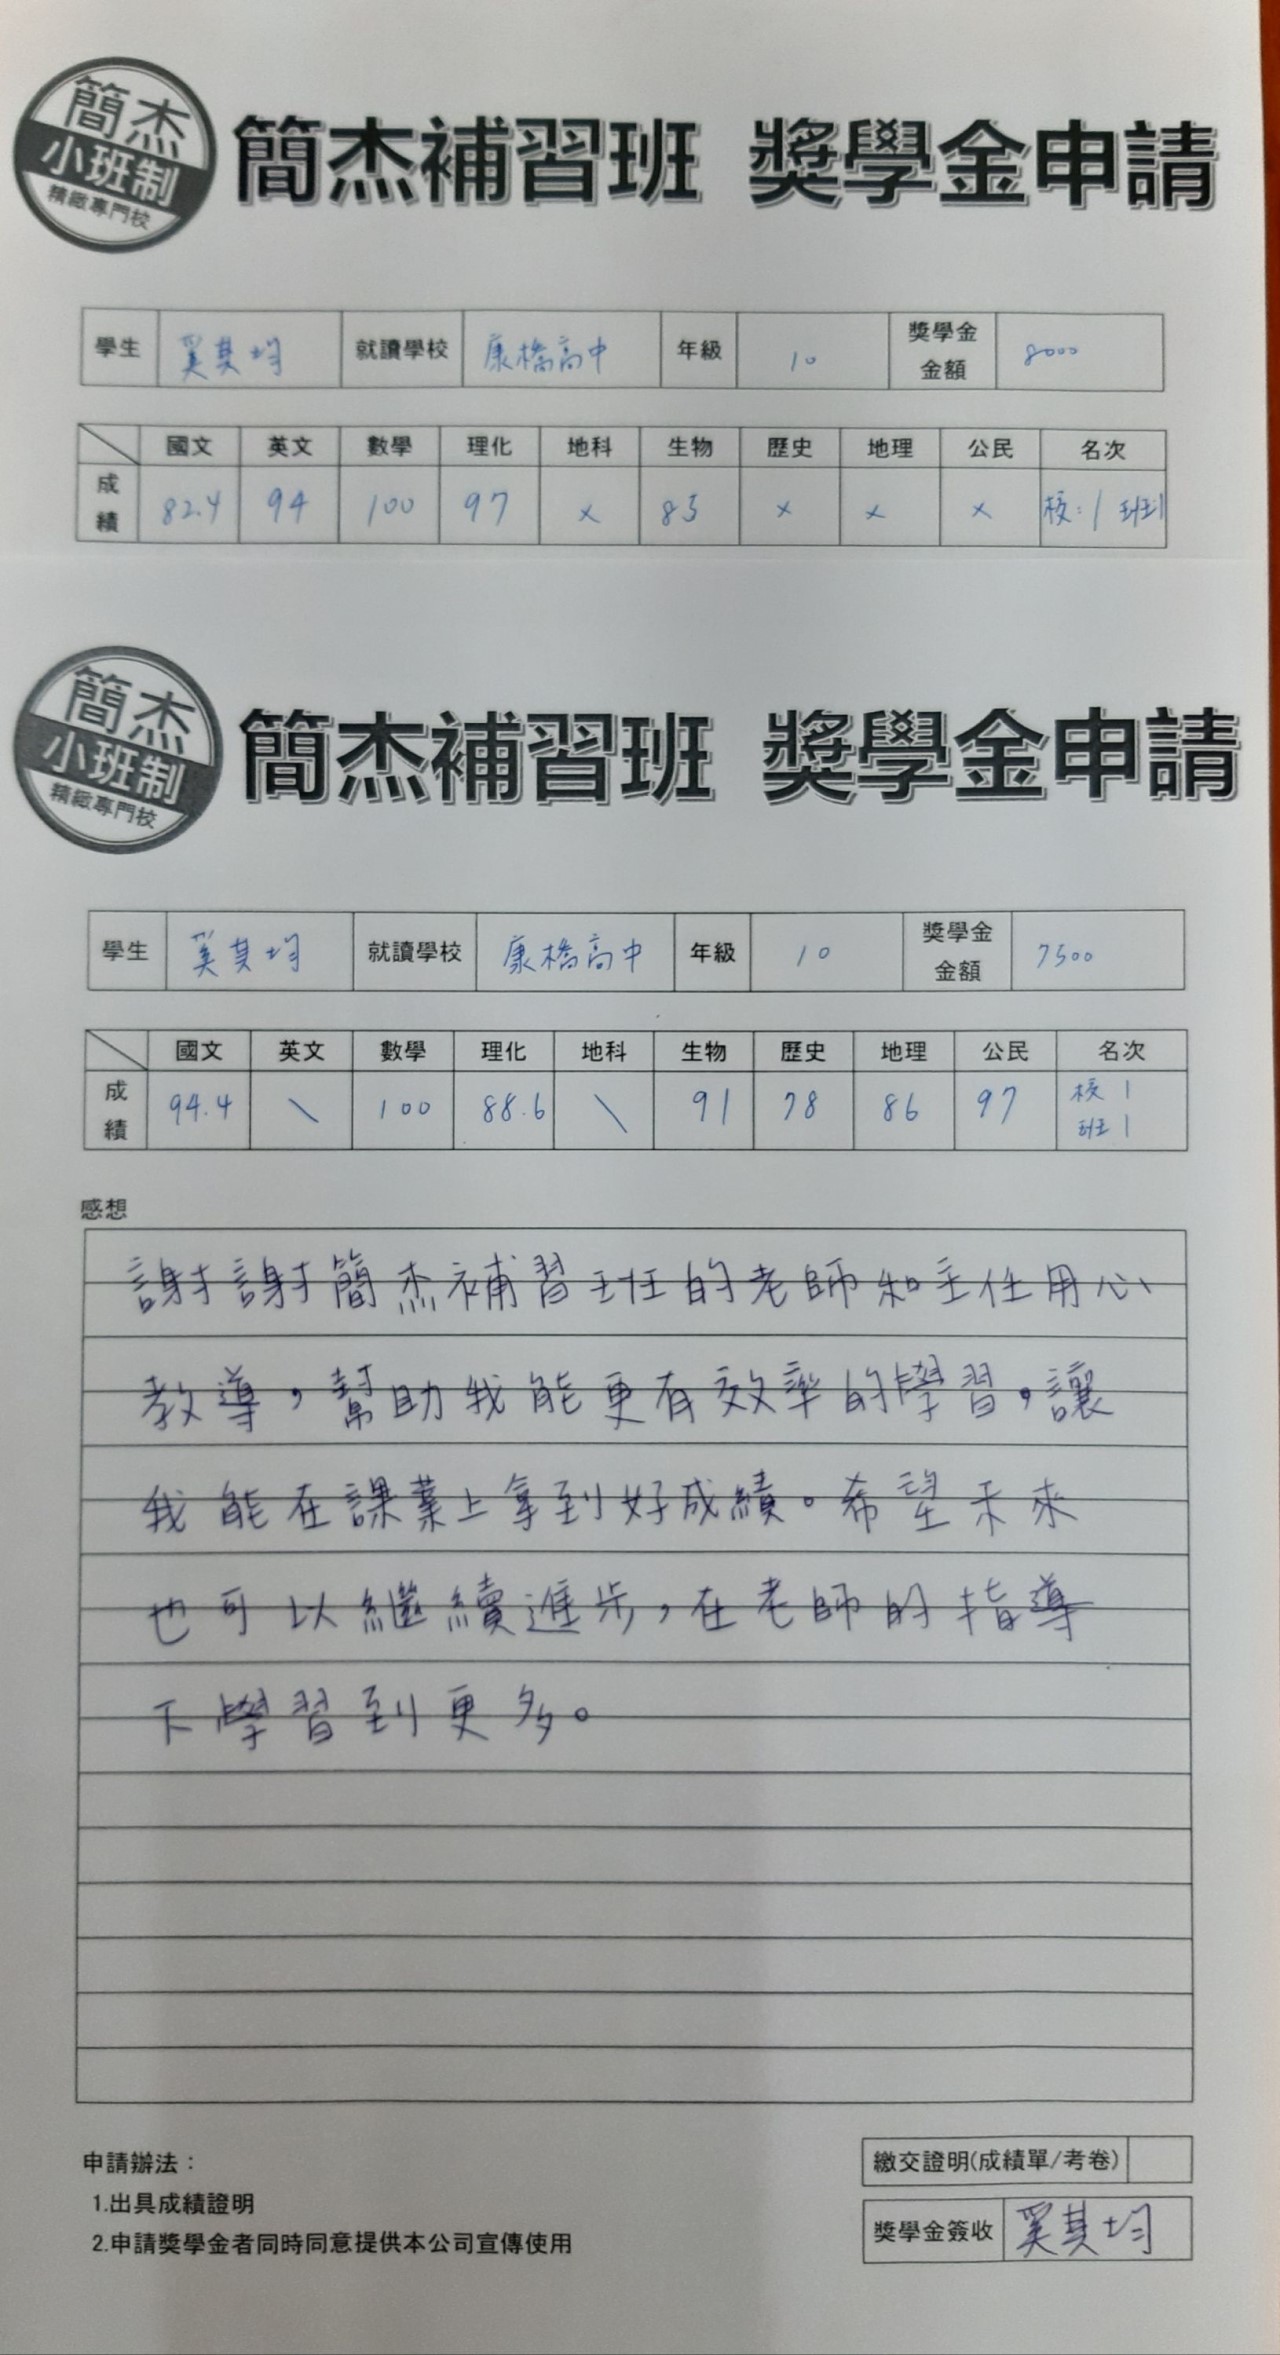 簡杰
小班制
精緻專門校
簡杰補習班 獎學金申請
學生 奚其均 就讀學校 康橋高中 年級 10 獎學金金額 8000
國文 英文 數學 理化 地科 生物 歷史 地理 公民 名次
成績 82.4 94 100 97 × 85 × × × 校:1 班1
簡杰
小班制
精緻專門校
簡杰補習班 獎學金申請
學生 奚其均 就讀學校 康橋高中 年級 10 獎學金金額 7500
國文 英文 數學 理化 地科 生物 歷史 地理 公民 名次
成績 94.4 \ 100 88.6 \ 91 78 86 97 校1 班1
感想
謝謝簡杰補習班的老師和主任用心
教導,幫助我能更有效率的學習,讓
我能在課業上拿到好成績。希望未來
也可以繼續進步,在老師的指導
下學習到更多。
申請辦法:
1.出具成績證明
2.申請獎學金者同時同意提供本公司宣傳使用
繳交證明(成績單/考卷)
獎學金簽收 奚其均